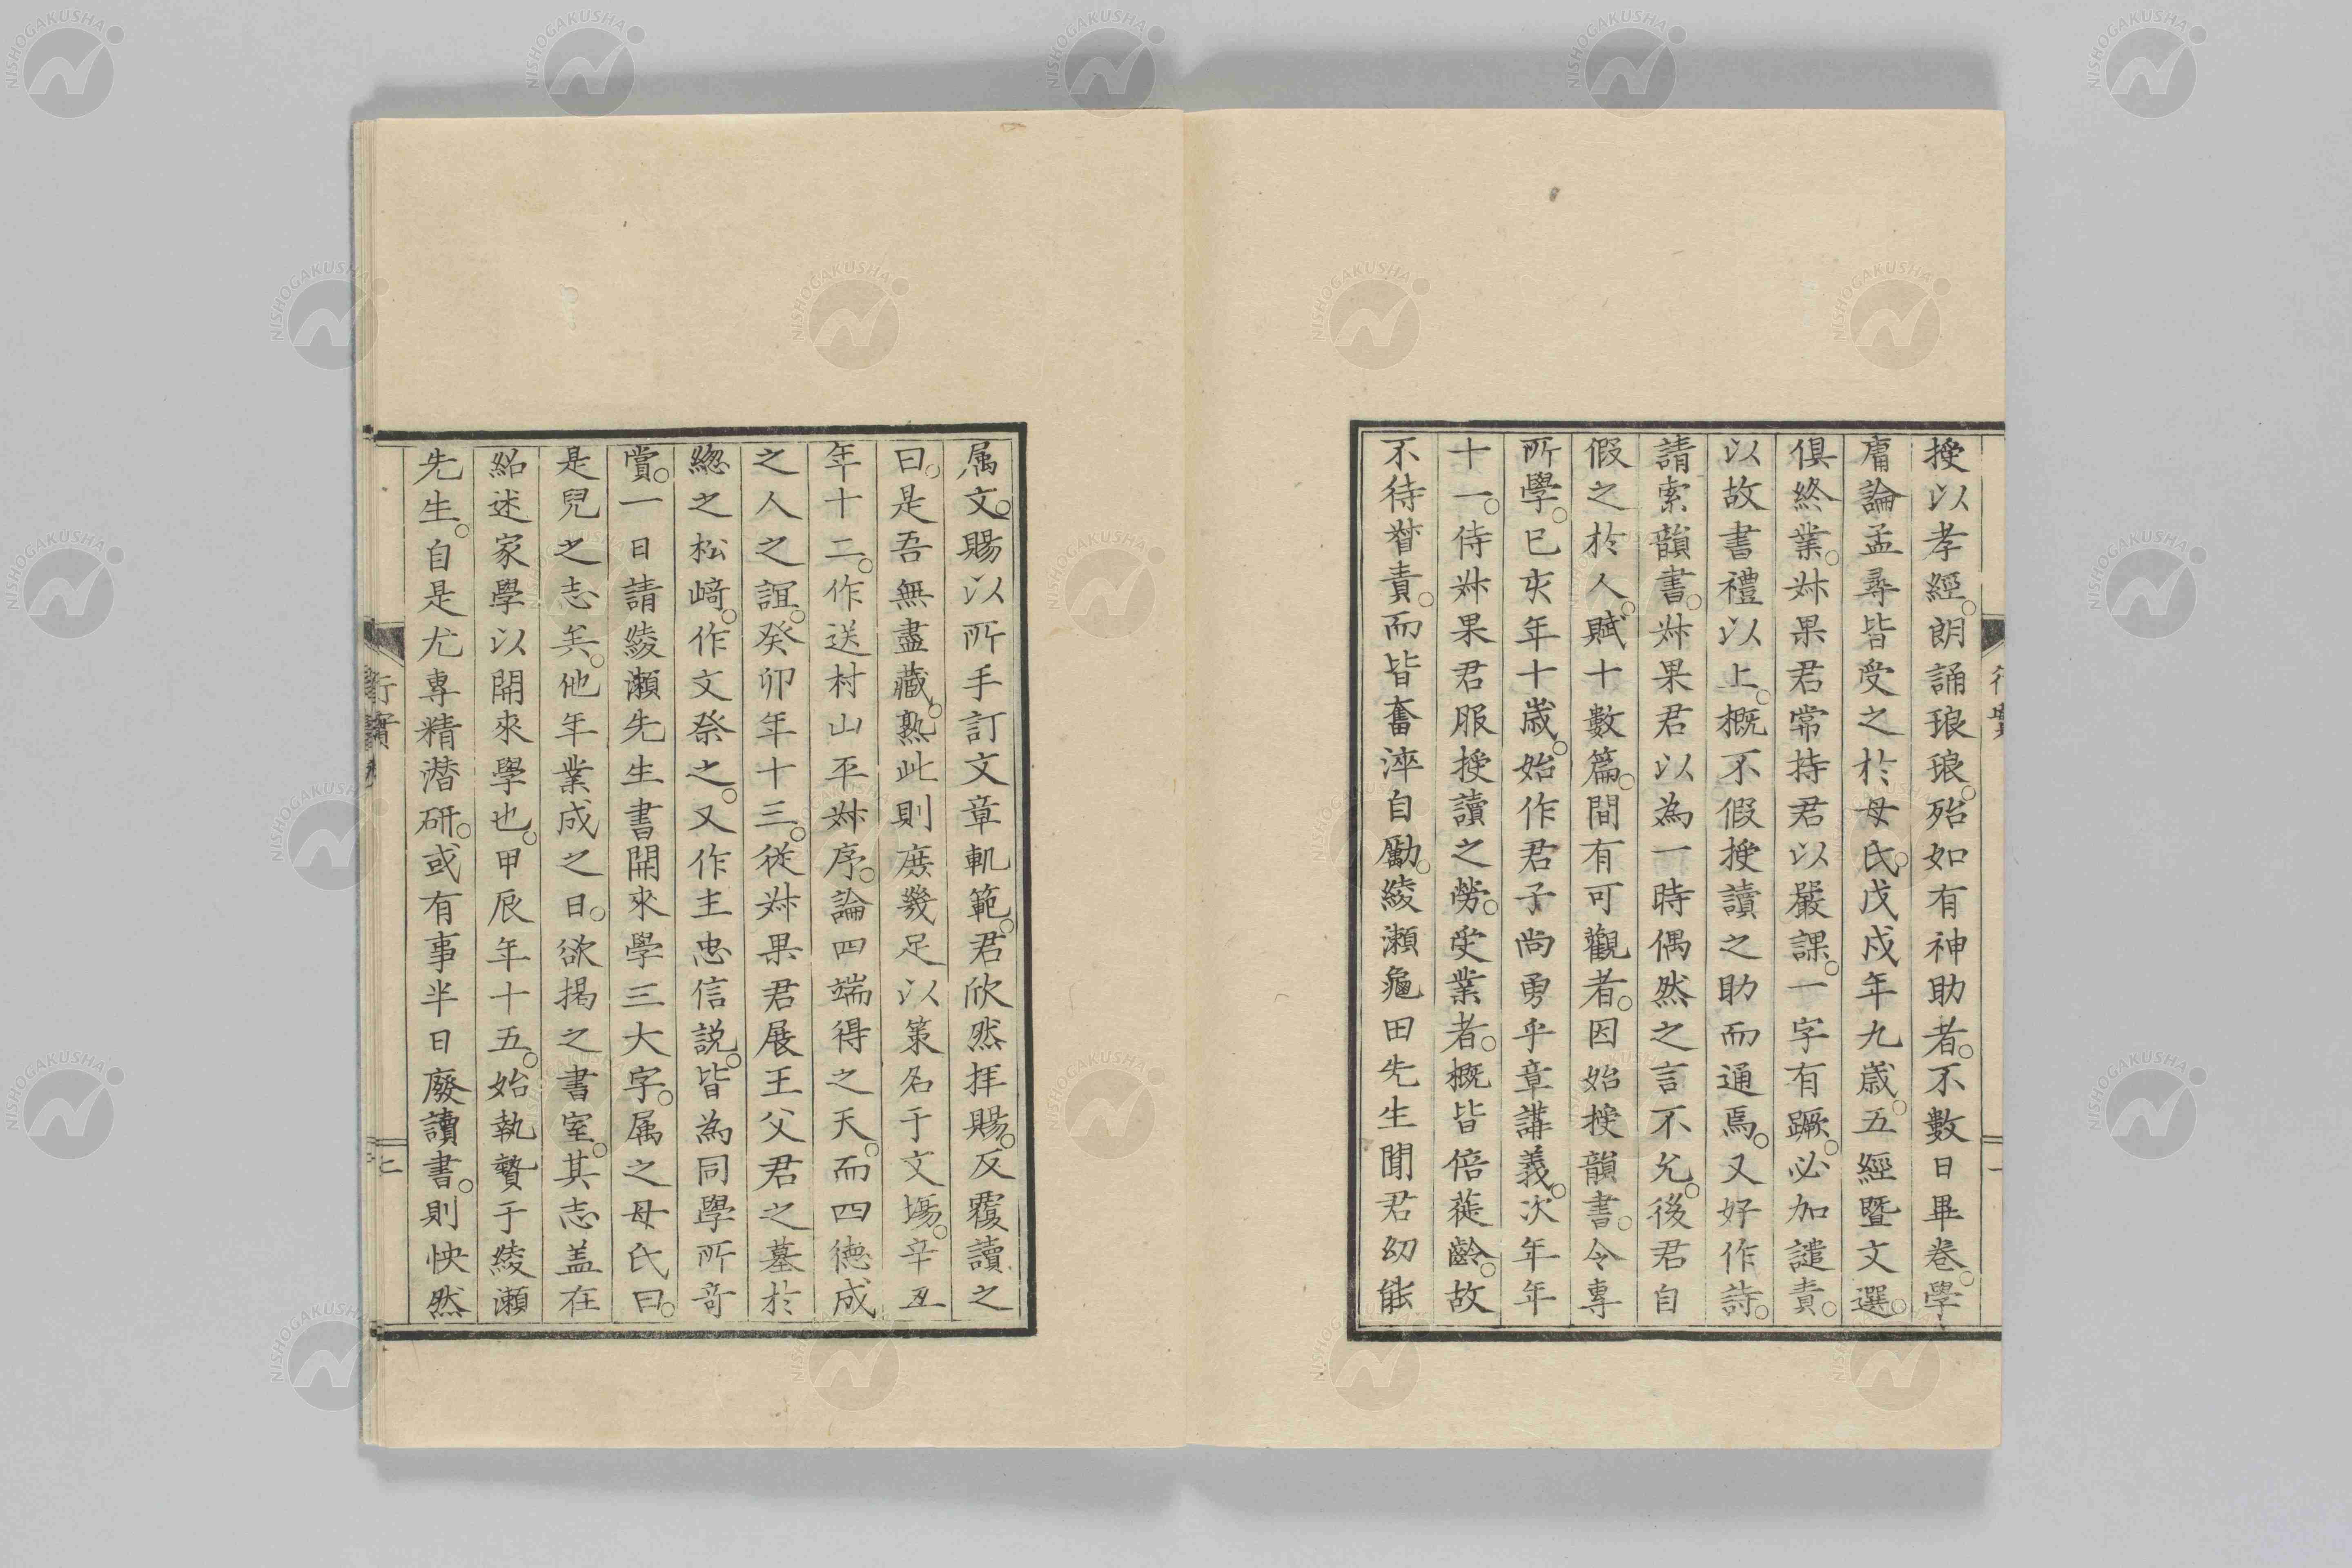 授以孝經。朗誦琅琅。殆如有神助者。不數日畢卷。學
庸論孟尋皆受之於母氏。戊戌年九歲。五經暨文選。
俱終業。栤果君常持君以嚴課。一字有蹶。必加譴責。
以故書禮以上。概不假授讀之助而通焉。又好作詩。
請索韻書。栤果君以為一時偶然之言不允。後君自
假之於人。賦十數篇。間有可觀者。因始授韻書。令專
所學。已亥年十歲。始作君子尚勇乎章講義。次年年
十一。待栤果君服授讀之勞。受業者。概皆倍蓰齡。故
不待督責。而皆奮淬自勵。綾瀬龜田先生聞君幼能
属文。賜以所手訂文章軌範。君欣然拝賜。反覆讀之
曰。是吾無盡藏。熟此則庶幾足以策名于文場。辛丑
年十二。作送村山平栤序。論四端得之天。而四德成
之人之誼。癸卯年十三。從栤果君展王父君之墓於
總之松﨑。作文祭之。又作主忠信説。皆為同學所奇
賞。一日請綾瀬先生書開來學三大字。属之母氏曰。
是兒之志矣。他年業成之日。欲揭之書室。其志盖在
紹述家學以開來學也。甲辰年十五。始執贄于綾瀬
先生。自是尤專精潜研。或有事半日廢讀書。則怏然
行實
NISHOGAKUSHA